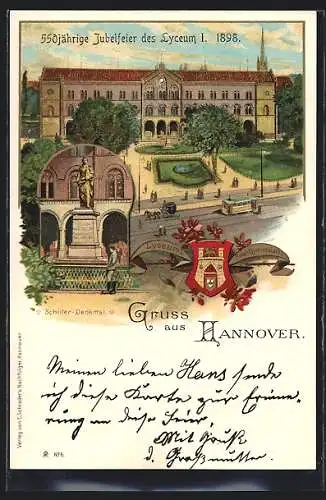 550jährige Jubelfeier des Lyceum I. 1898.
Lyceum
Schiller-Denkmal.
Gruss
aus HANNOVER.
Meinen lieben Hans sende
ich diese Karte zur Erinne-
rung an diese Feier.
Mit Gruß
d. Großmutter.
Verlag von C. Schrader's Nachfolger, Hannover